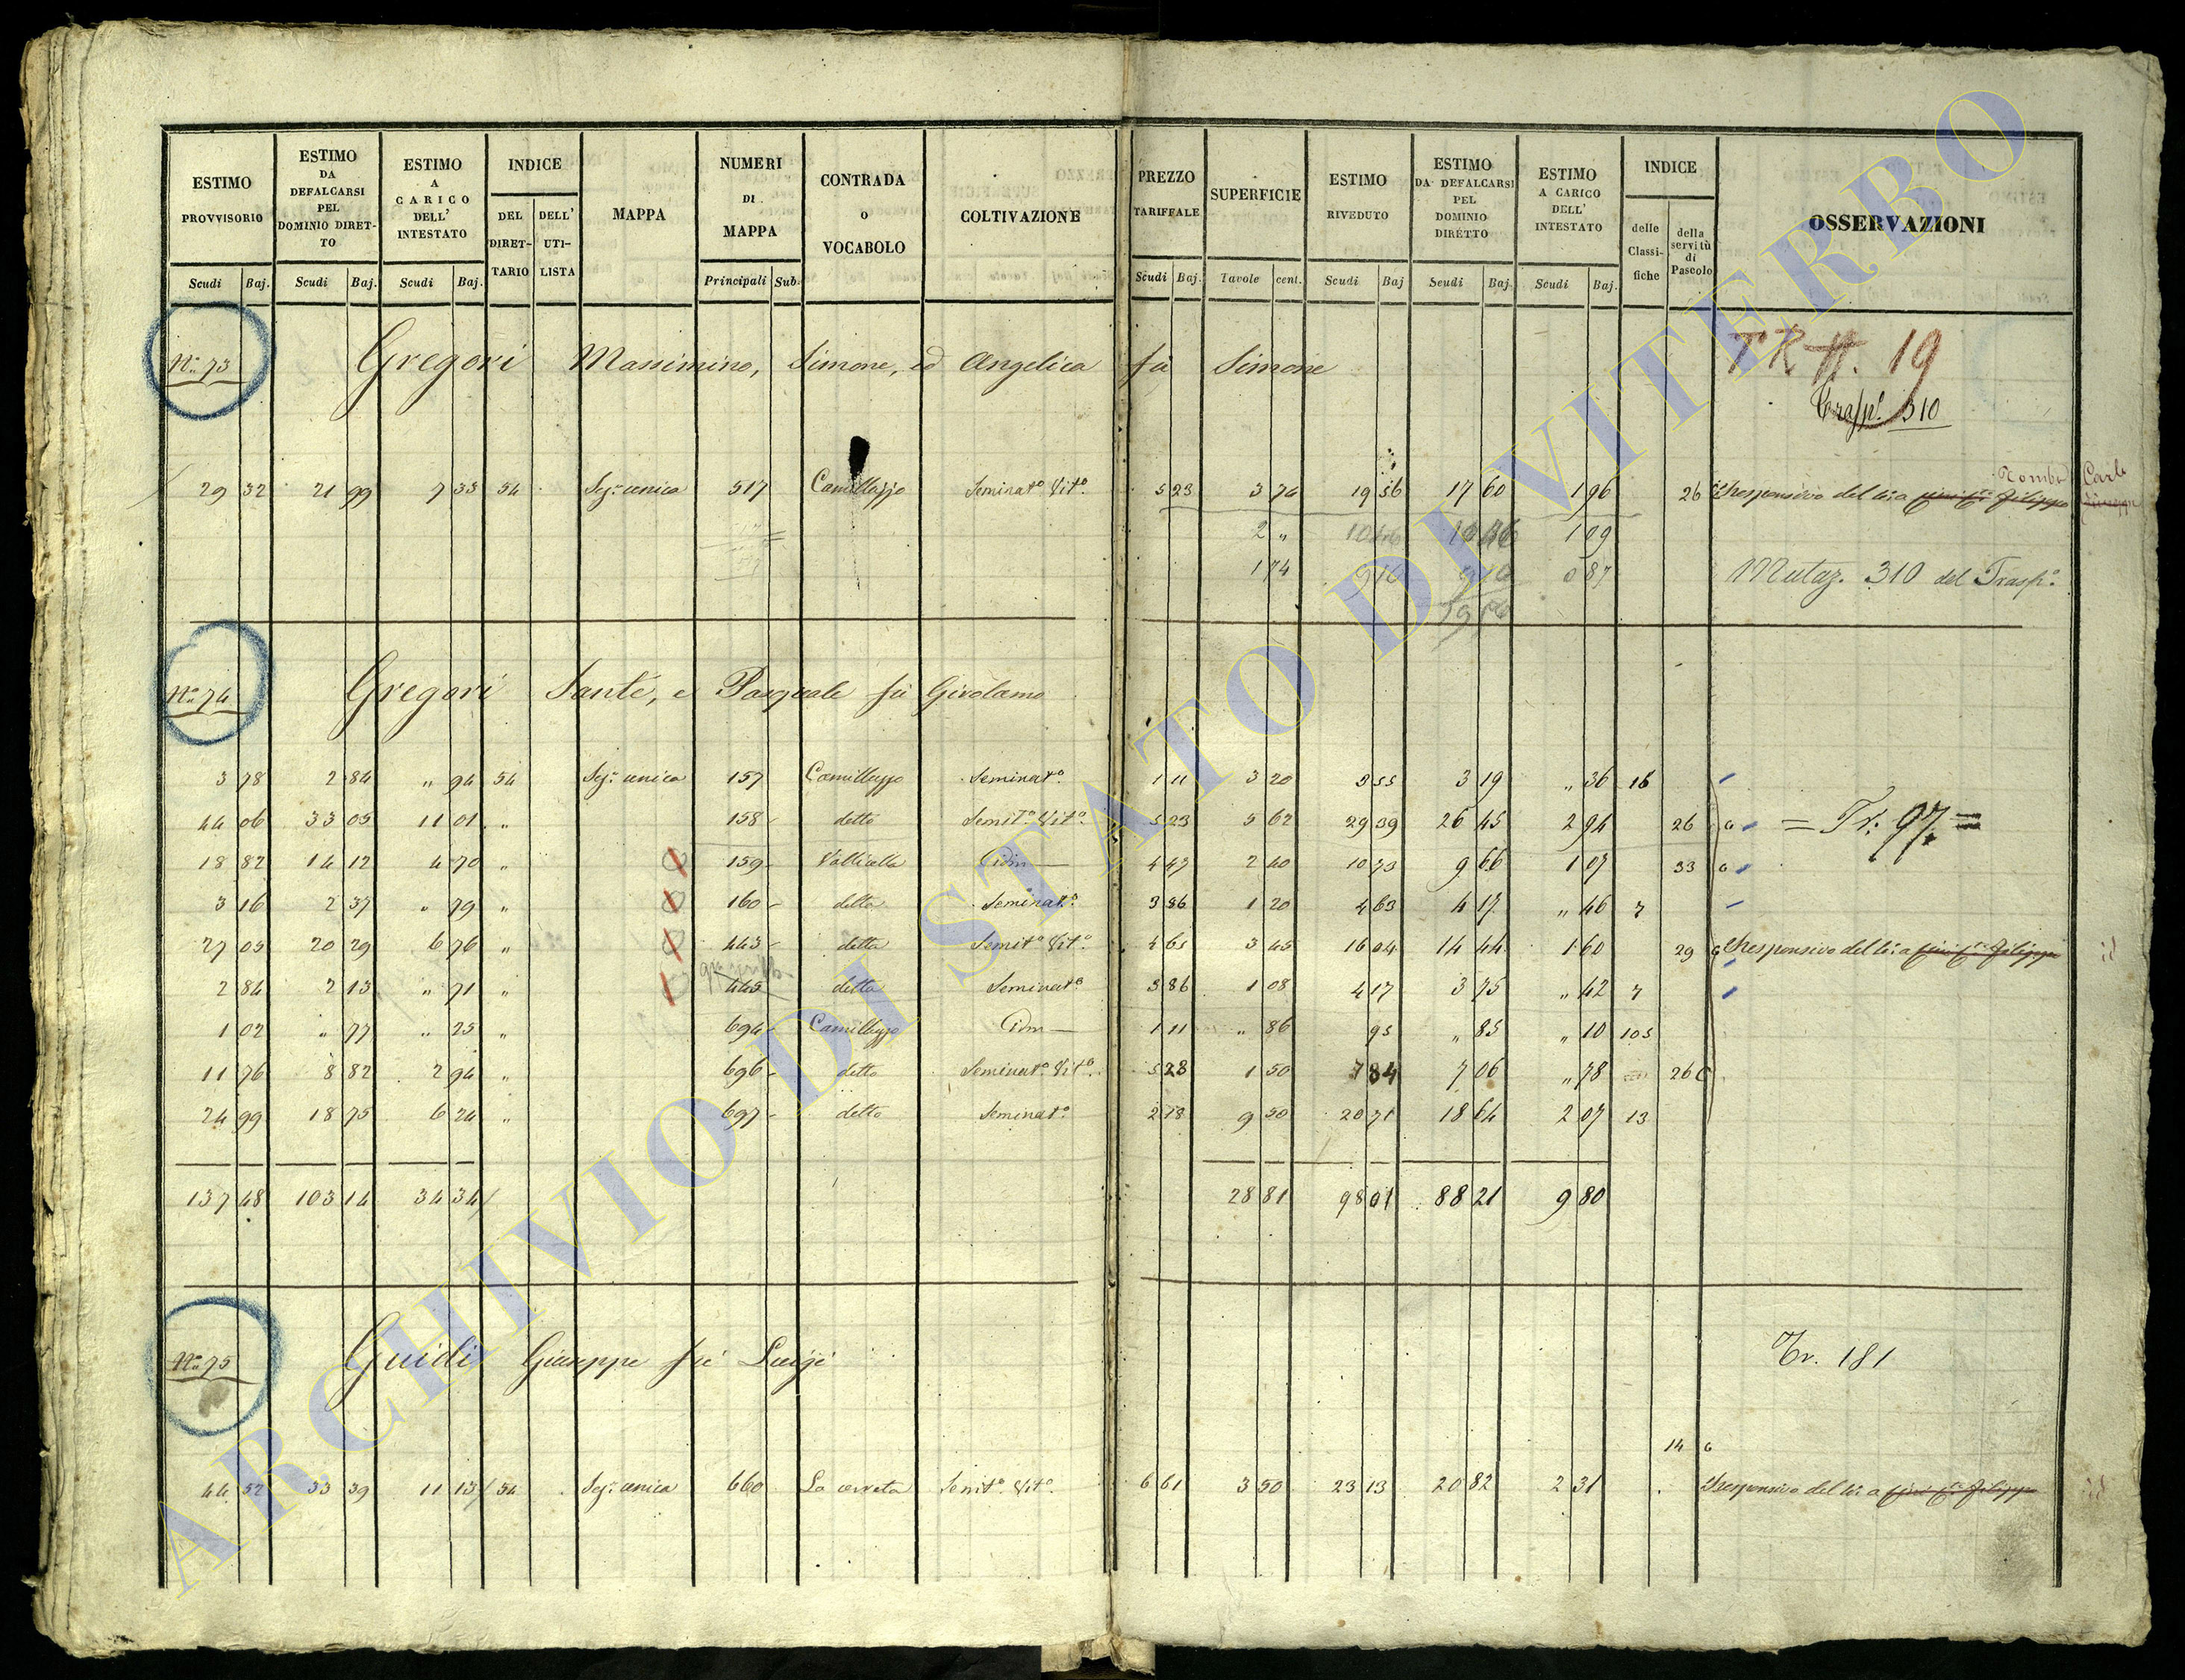 ESTIMO PROVVISORIO | ESTIMO DA DEFALCARSI PEL DOMINIO DIRETTO | ESTIMO A CARICO DELL' INTESTATO | INDICE DEL DIRETTARIO | DELL' UTILISTA | MAPPA | NUMERI DI MAPPA | CONTRADA O VOCABOLO | COLTIVAZIONE | PREZZO TARIFFALE | SUPERFICIE | ESTIMO RIVEDUTO | ESTIMO DA DEFALCARSI PEL DOMINIO DIRETTO | ESTIMO A CARICO DELL' INTESTATO | INDICE delle Classifiche | della servitù di Pascolo | OSSERVAZIONI
Scudi Baj. | Scudi Baj. | Scudi Baj. | Principali Sub. | Scudi Baj. | Tavole cent. | Scudi Baj | Scudi Baj. | Scudi Baj.
N.º 73 Gregori Massimino, Simone, ed Angelica fù Simone
19
Trasp.º 310
29 32 | 21 99 | 7 33 | 54 | Sez.e unica | 517 | Camilluzzo | Seminat.º Vit.º | 5 23 | 3 74 | 19 56 | 17 60 | 1 96 | 26 | Responsivo del
2 " | 10 46 | 1 09
1 74 | 9 10 | 0 87 | Mutaz. 310 del Trasp.º
N.º 74 Gregori Sante, e Pasquale fù Girolamo
3 78 | 2 84 | " 94 | 54 | Sez.e unica | 157 | Camilluzzo | Seminat.º | 1 11 | 3 20 | 3 55 | 3 19 | " 36 | 16
44 06 | 33 05 | 11 01 | " | 158 | detto | Semit.º Vit.º | 5 23 | 5 62 | 29 39 | 26 45 | 2 94 | 26 | = Tr: 97 =
18 82 | 14 12 | 4 70 | " | 159 | Vallicella | Idm | 4 47 | 2 40 | 10 73 | 9 66 | 1 07 | 33
3 16 | 2 37 | " 79 | " | 160 | detta | Seminat.º | 3 86 | 1 20 | 4 63 | 4 17 | " 46 | 7
27 05 | 20 29 | 6 76 | " | 443 | detta | Semit.º Vit.º | 4 65 | 3 45 | 16 04 | 14 44 | 1 60 | 29 | Responsivo del
2 84 | 2 13 | " 71 | " | 445 | detta | Seminat.º | 3 86 | 1 08 | 4 17 | 3 75 | " 42 | 7
1 02 | " 77 | " 25 | " | 694 | Camilluzzo | Idm | 1 11 | " 86 | 95 | " 85 | " 10 | 105
11 76 | 8 82 | 2 94 | " | 696 | detto | Seminat.º Vit.º | 5 23 | 1 50 | 7 84 | 7 06 | " 78 | 26
24 99 | 18 75 | 6 24 | " | 697 | detto | Seminat.º | 2 18 | 9 50 | 20 71 | 18 64 | 2 07 | 13
137 48 | 103 14 | 34 34 | 28 81 | 98 01 | 88 21 | 9 80
N.º 75 Guidi Giuseppe fù Luigi
Tr. 181
14
44 52 | 33 39 | 11 13 | 54 | Sez.e unica | 660 | La cerreta | Semit.º Vit.º | 6 61 | 3 50 | 23 13 | 20 82 | 2 31 | Responsivo del
ARCHIVIO DI STATO DI VITERBO